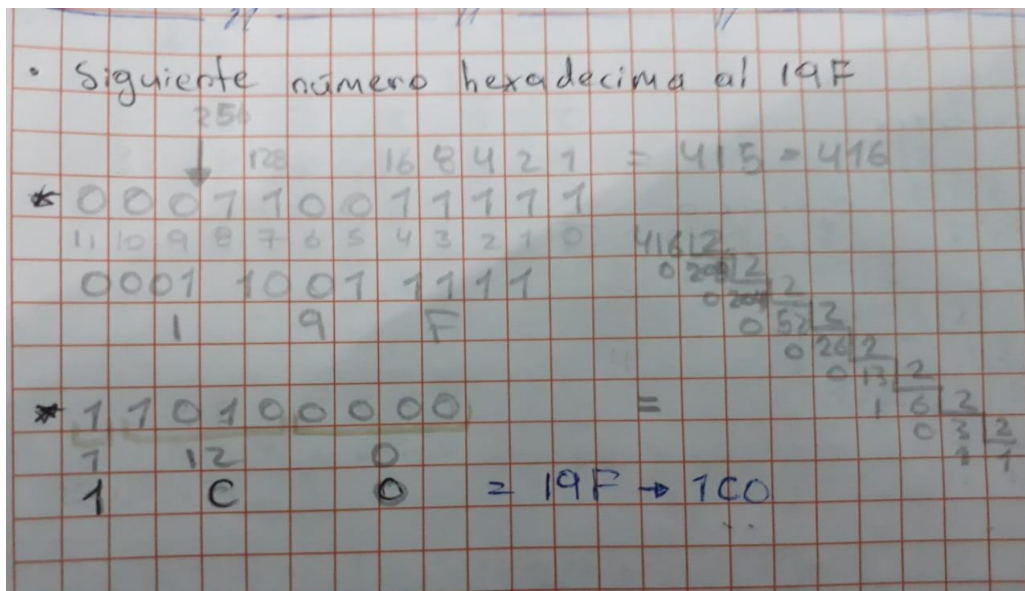 • Siguiente número hexadecima al 19F
256
128 16 8 4 2 1 = 415 = 416
* 0 0 0 1 1 0 0 1 1 1 1 1
11 10 9 8 7 6 5 4 3 2 1 0
0001 1001 1111
1 9 F
416 2
0 208 2
0 204 2
0 52 2
0 26 2
0 13 2
1 6 2
0 3 2
1 1
* 1 1 0 1 0 0 0 0 0 =
1 12 0
1 C 0 = 19F → 1C0